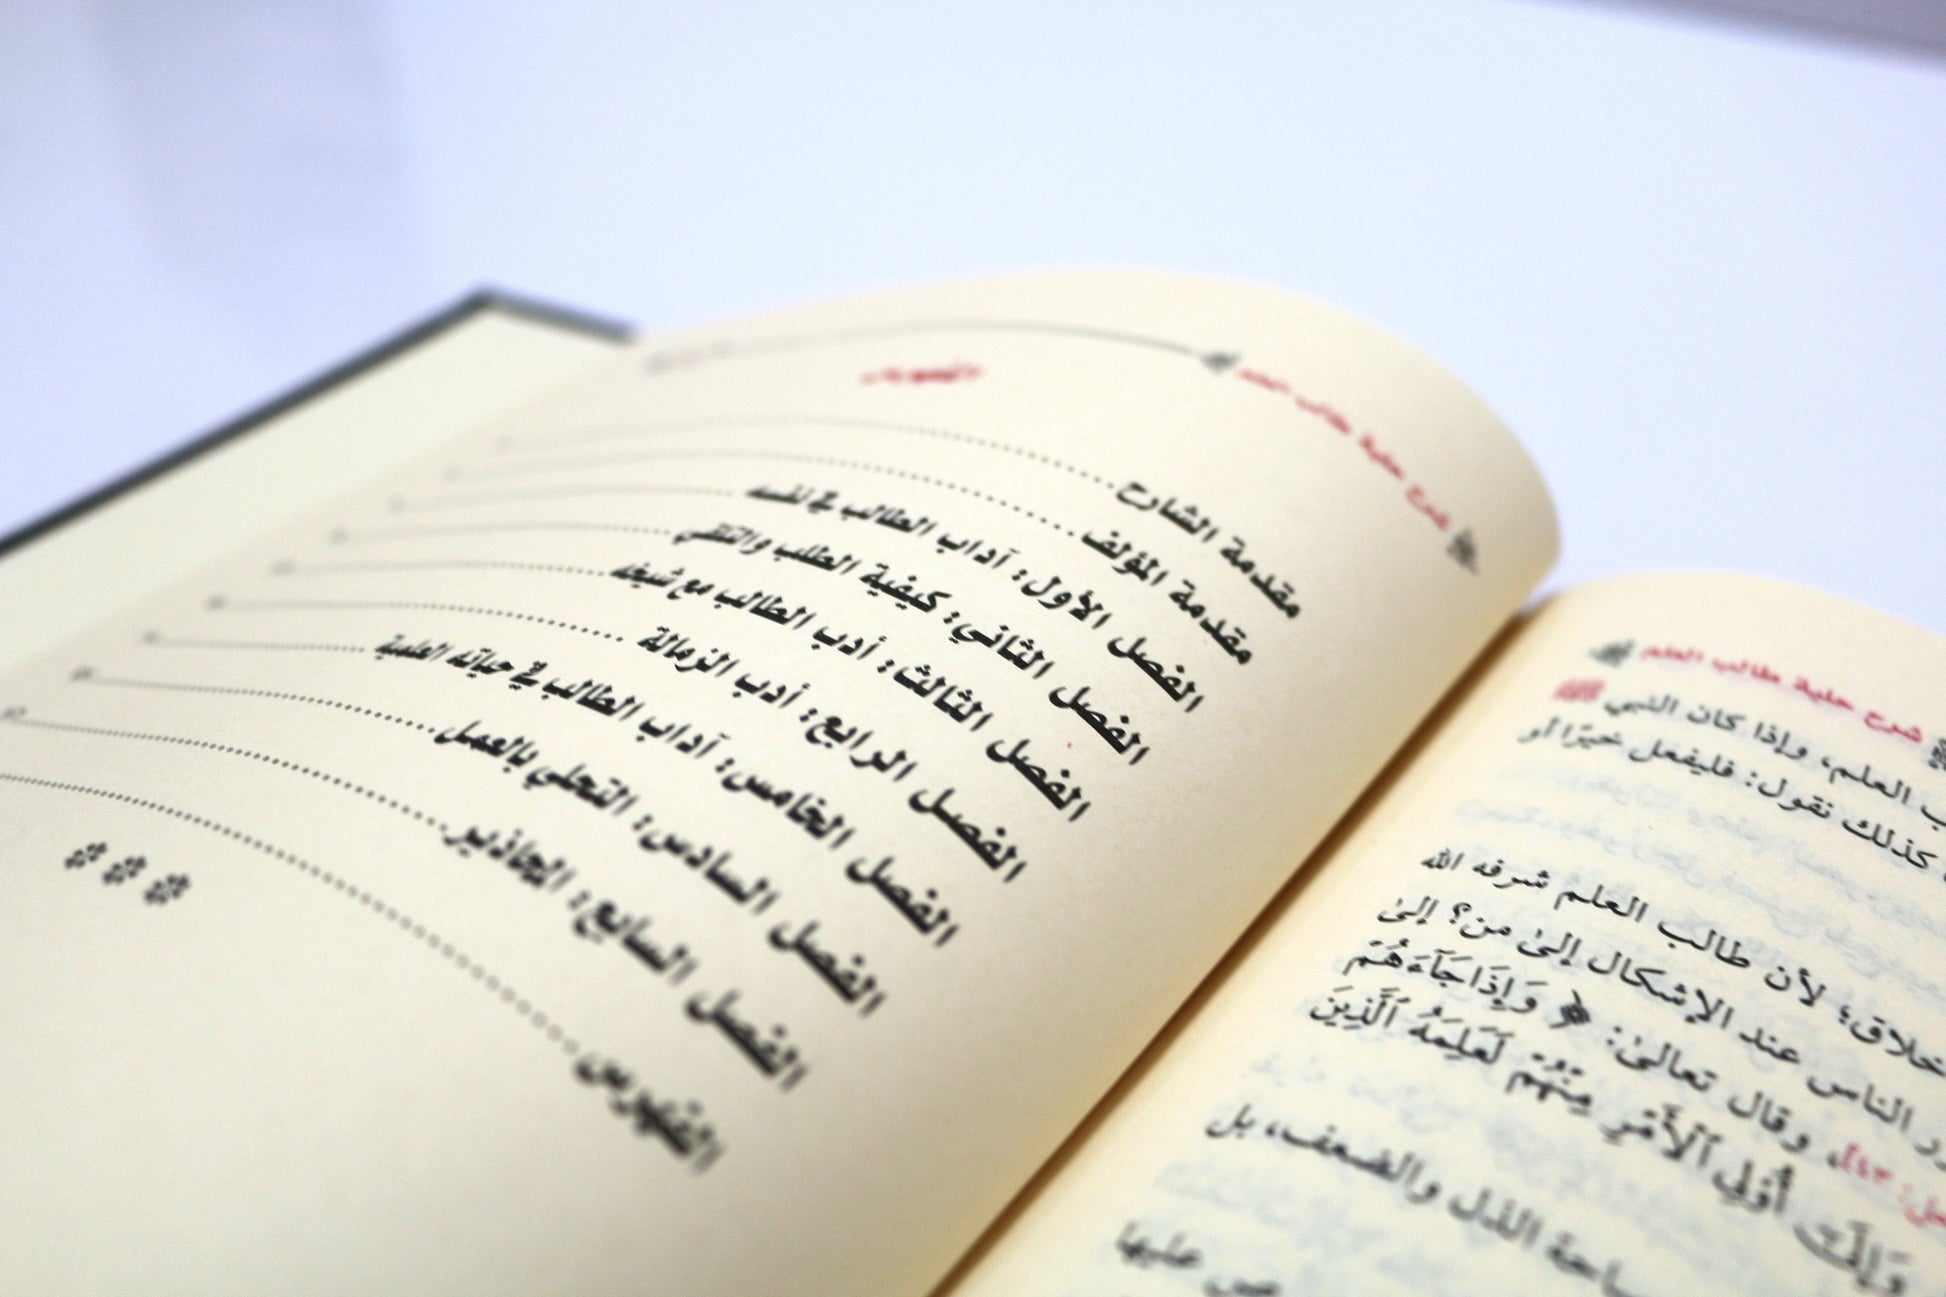 شرح حلية طالب العلم
الفهرس
مقدمة الشارح
مقدمة المؤلف
الفصل الأول: آداب الطالب في نفسه
الفصل الثاني: كيفية الطلب والتلقي
الفصل الثالث: أدب الطالب مع شيخه
الفصل الرابع: أدب الزمالة
الفصل الخامس: آداب الطالب في حياته العلمية
الفصل السادس: التحلي بالعمل
الفصل السابع: المحاذير
الفهرس
شرح حلية طالب العلم
العلم، وإذا كان النبي ﷺ
كذلك نقول: فليفعل خيرًا أو
لأن طالب العلم شرفه الله
الناس عند الإشكال إلىٰ من؟ إلىٰ
وقال تعالىٰ: ﴿ وَإِذَا جَآءَهُمْ
وَإِلَىٰٓ أُو۟لِى ٱلْأَمْرِ مِنْهُمْ لَعَلِمَهُ ٱلَّذِينَ
الذل والضعف، بل
عليها